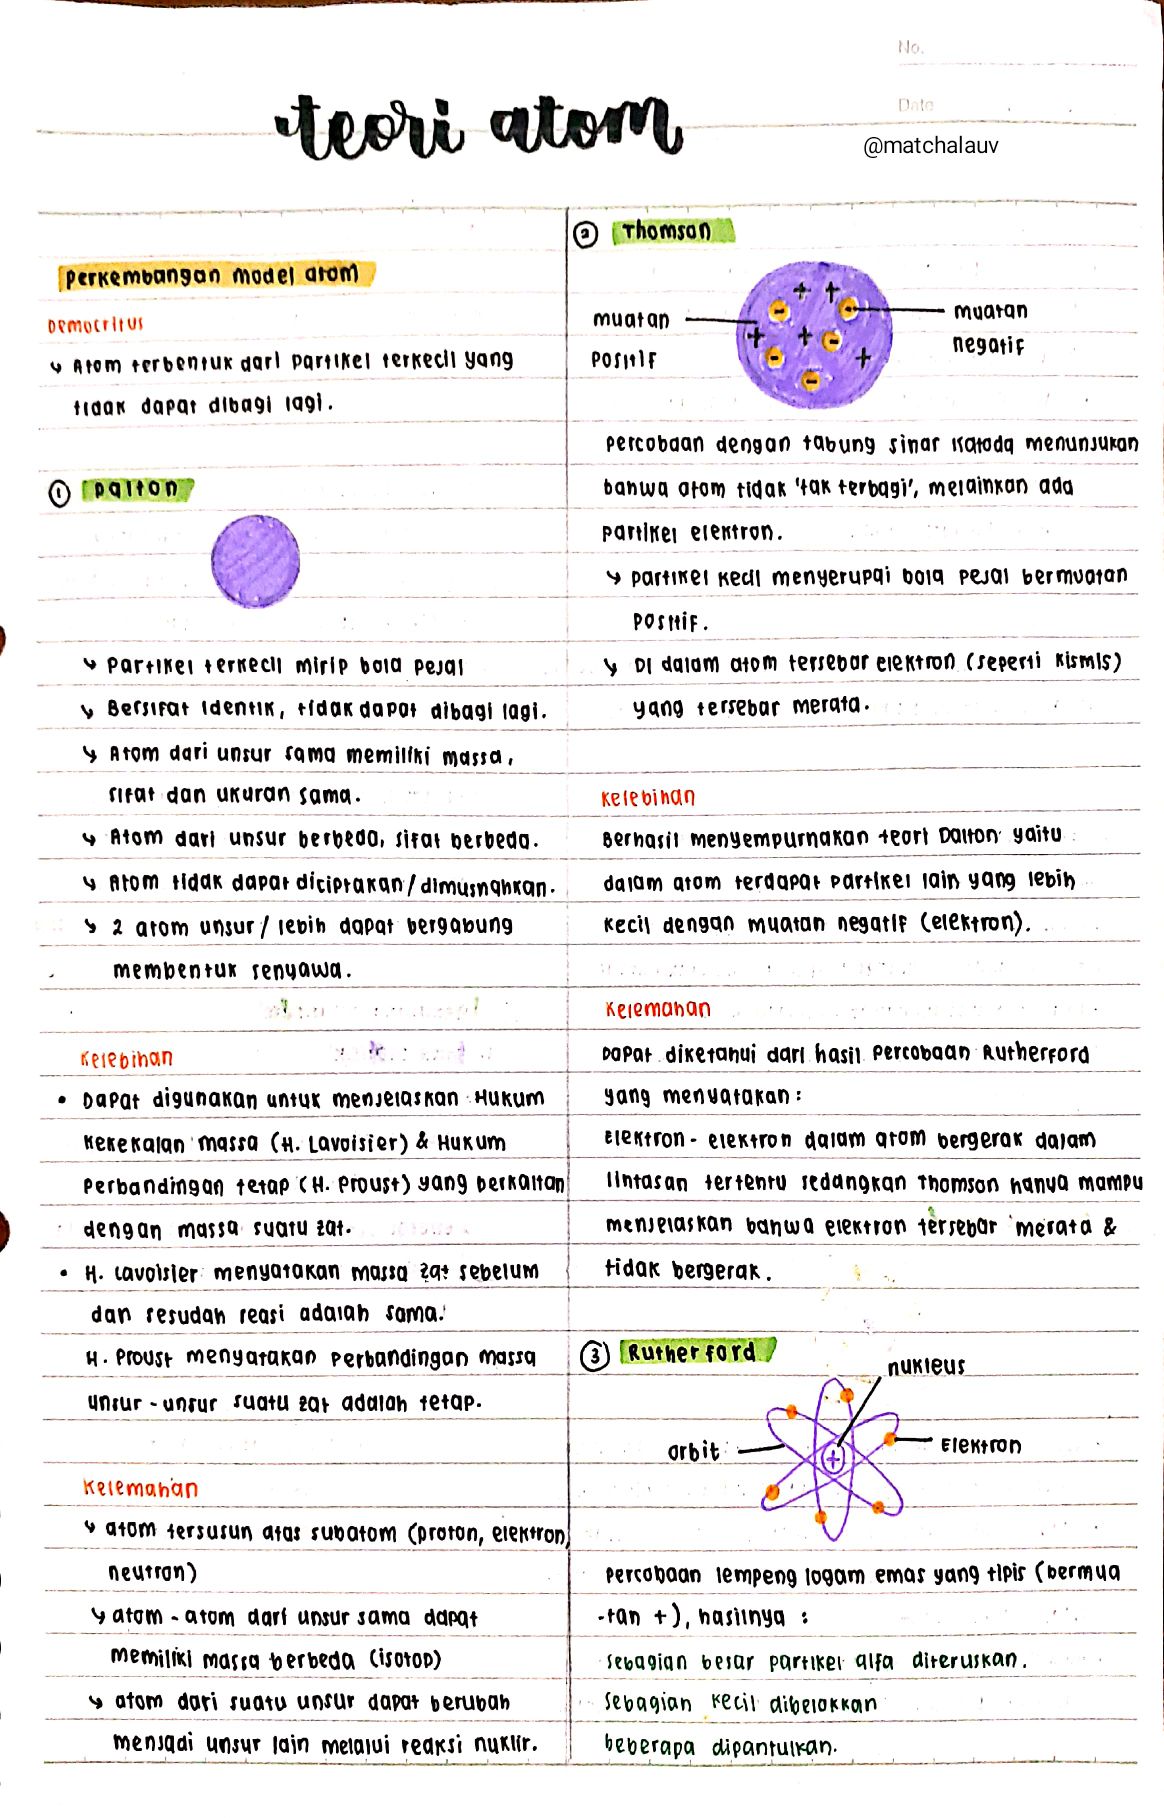 No.
Date
teori atom
@matchalauv
Perkembangan model atom
Democritus
↳ Atom terbentuk dari partikel terkecil yang
tidak dapat dibagi lagi.
① Dalton
↳ Partikel terkecil mirip bola pejal
↳ Bersifat identik, tidak dapat dibagi lagi.
↳ Atom dari unsur sama memiliki massa,
sifat dan ukuran sama.
↳ Atom dari unsur berbeda, sifat berbeda.
↳ Atom tidak dapat diciptakan/dimusnahkan.
↳ 2 atom unsur/lebih dapat bergabung
membentuk senyawa.
Kelebihan
• Dapat digunakan untuk menjelaskan Hukum
kekekalan massa (H. Lavoisier) & Hukum
Perbandingan tetap (H. Proust) yang berkaitan
dengan massa suatu zat.
• H. Lavoisier menyatakan massa zat sebelum
dan sesudah reasi adalah sama.
H. Proust menyatakan perbandingan massa
unsur-unsur suatu zat adalah tetap.
Kelemahan
↳ atom tersusun atas subatom (proton, elektron,
neutron)
↳ atom-atom dari unsur sama dapat
memiliki massa berbeda (isotop)
↳ atom dari suatu unsur dapat berubah
menjadi unsur lain melalui reaksi nuklir.
② Thomson
muatan
positif
+ +
- -
+ + -
- +
-
muatan
negatif
Percobaan dengan tabung sinar katoda menunjukan
bahwa atom tidak 'tak terbagi', melainkan ada
partikel elektron.
↳ Partikel kecil menyerupai bola pejal bermuatan
positif.
↳ Di dalam atom tersebar elektron (seperti kismis)
yang tersebar merata.
Kelebihan
Berhasil menyempurnakan teori Dalton yaitu
dalam atom terdapat partikel lain yang lebih
kecil dengan muatan negatif (elektron).
Kelemahan
Dapat diketahui dari hasil percobaan Rutherford
yang menyatakan:
Elektron-elektron dalam atom bergerak dalam
lintasan tertentu sedangkan Thomson hanya mampu
menjelaskan bahwa elektron tersebar merata &
tidak bergerak.
③ Rutherford
nukleus
orbit
+
Elektron
Percobaan lempeng logam emas yang tipis (bermua
-tan +), hasilnya :
sebagian besar partikel alfa diteruskan.
sebagian kecil dibelokkan
beberapa dipantulkan.